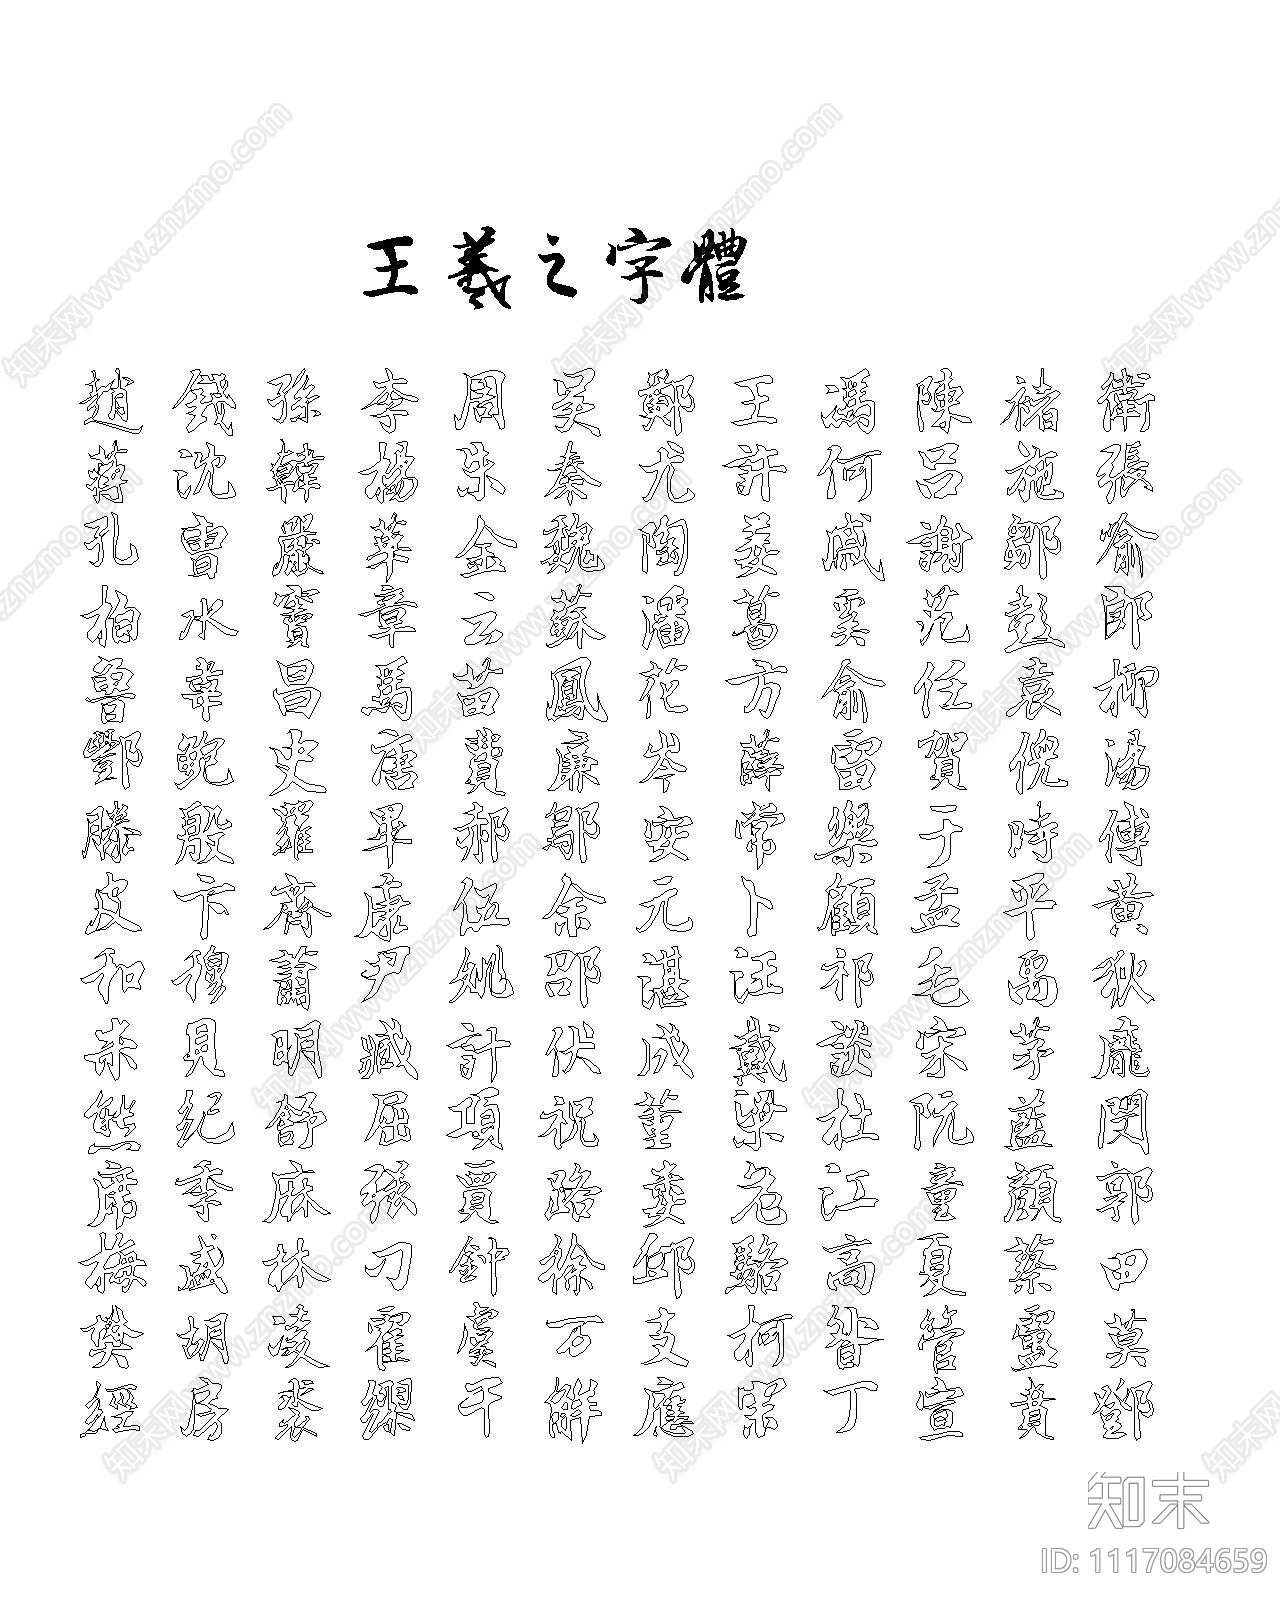 王羲之字體
趙錢孫李周吴鄭王馮陳褚衛
蔣沈韓楊朱秦尤許何呂施張
孔曹嚴華金魏陶姜戚謝鄒喻
柏水竇章云蘇潘葛奚范彭郎
魯韋昌馬苗鳳花方俞任袁柳
酆鮑史唐費廉岑薛雷賀倪湯
滕殷羅畢郝鄔安常樂于時傅
皮卞齊康伍余元卜顧孟平黃
和穆蕭尹姚邵湛汪祁毛禹狄
米貝明臧計伏成戴談宋茅龐
熊紀舒屈項祝董梁杜阮藍閔
席季麻强賈路婁危江童顏郭
梅盛林刁鍾徐邱駱高夏蔡田
樊胡凌霍虞万支柯昝管盧莫
經房裘繆干解應宗丁宣賁鄧
知末
ID: 1117084659
知末网www.znzmo.com